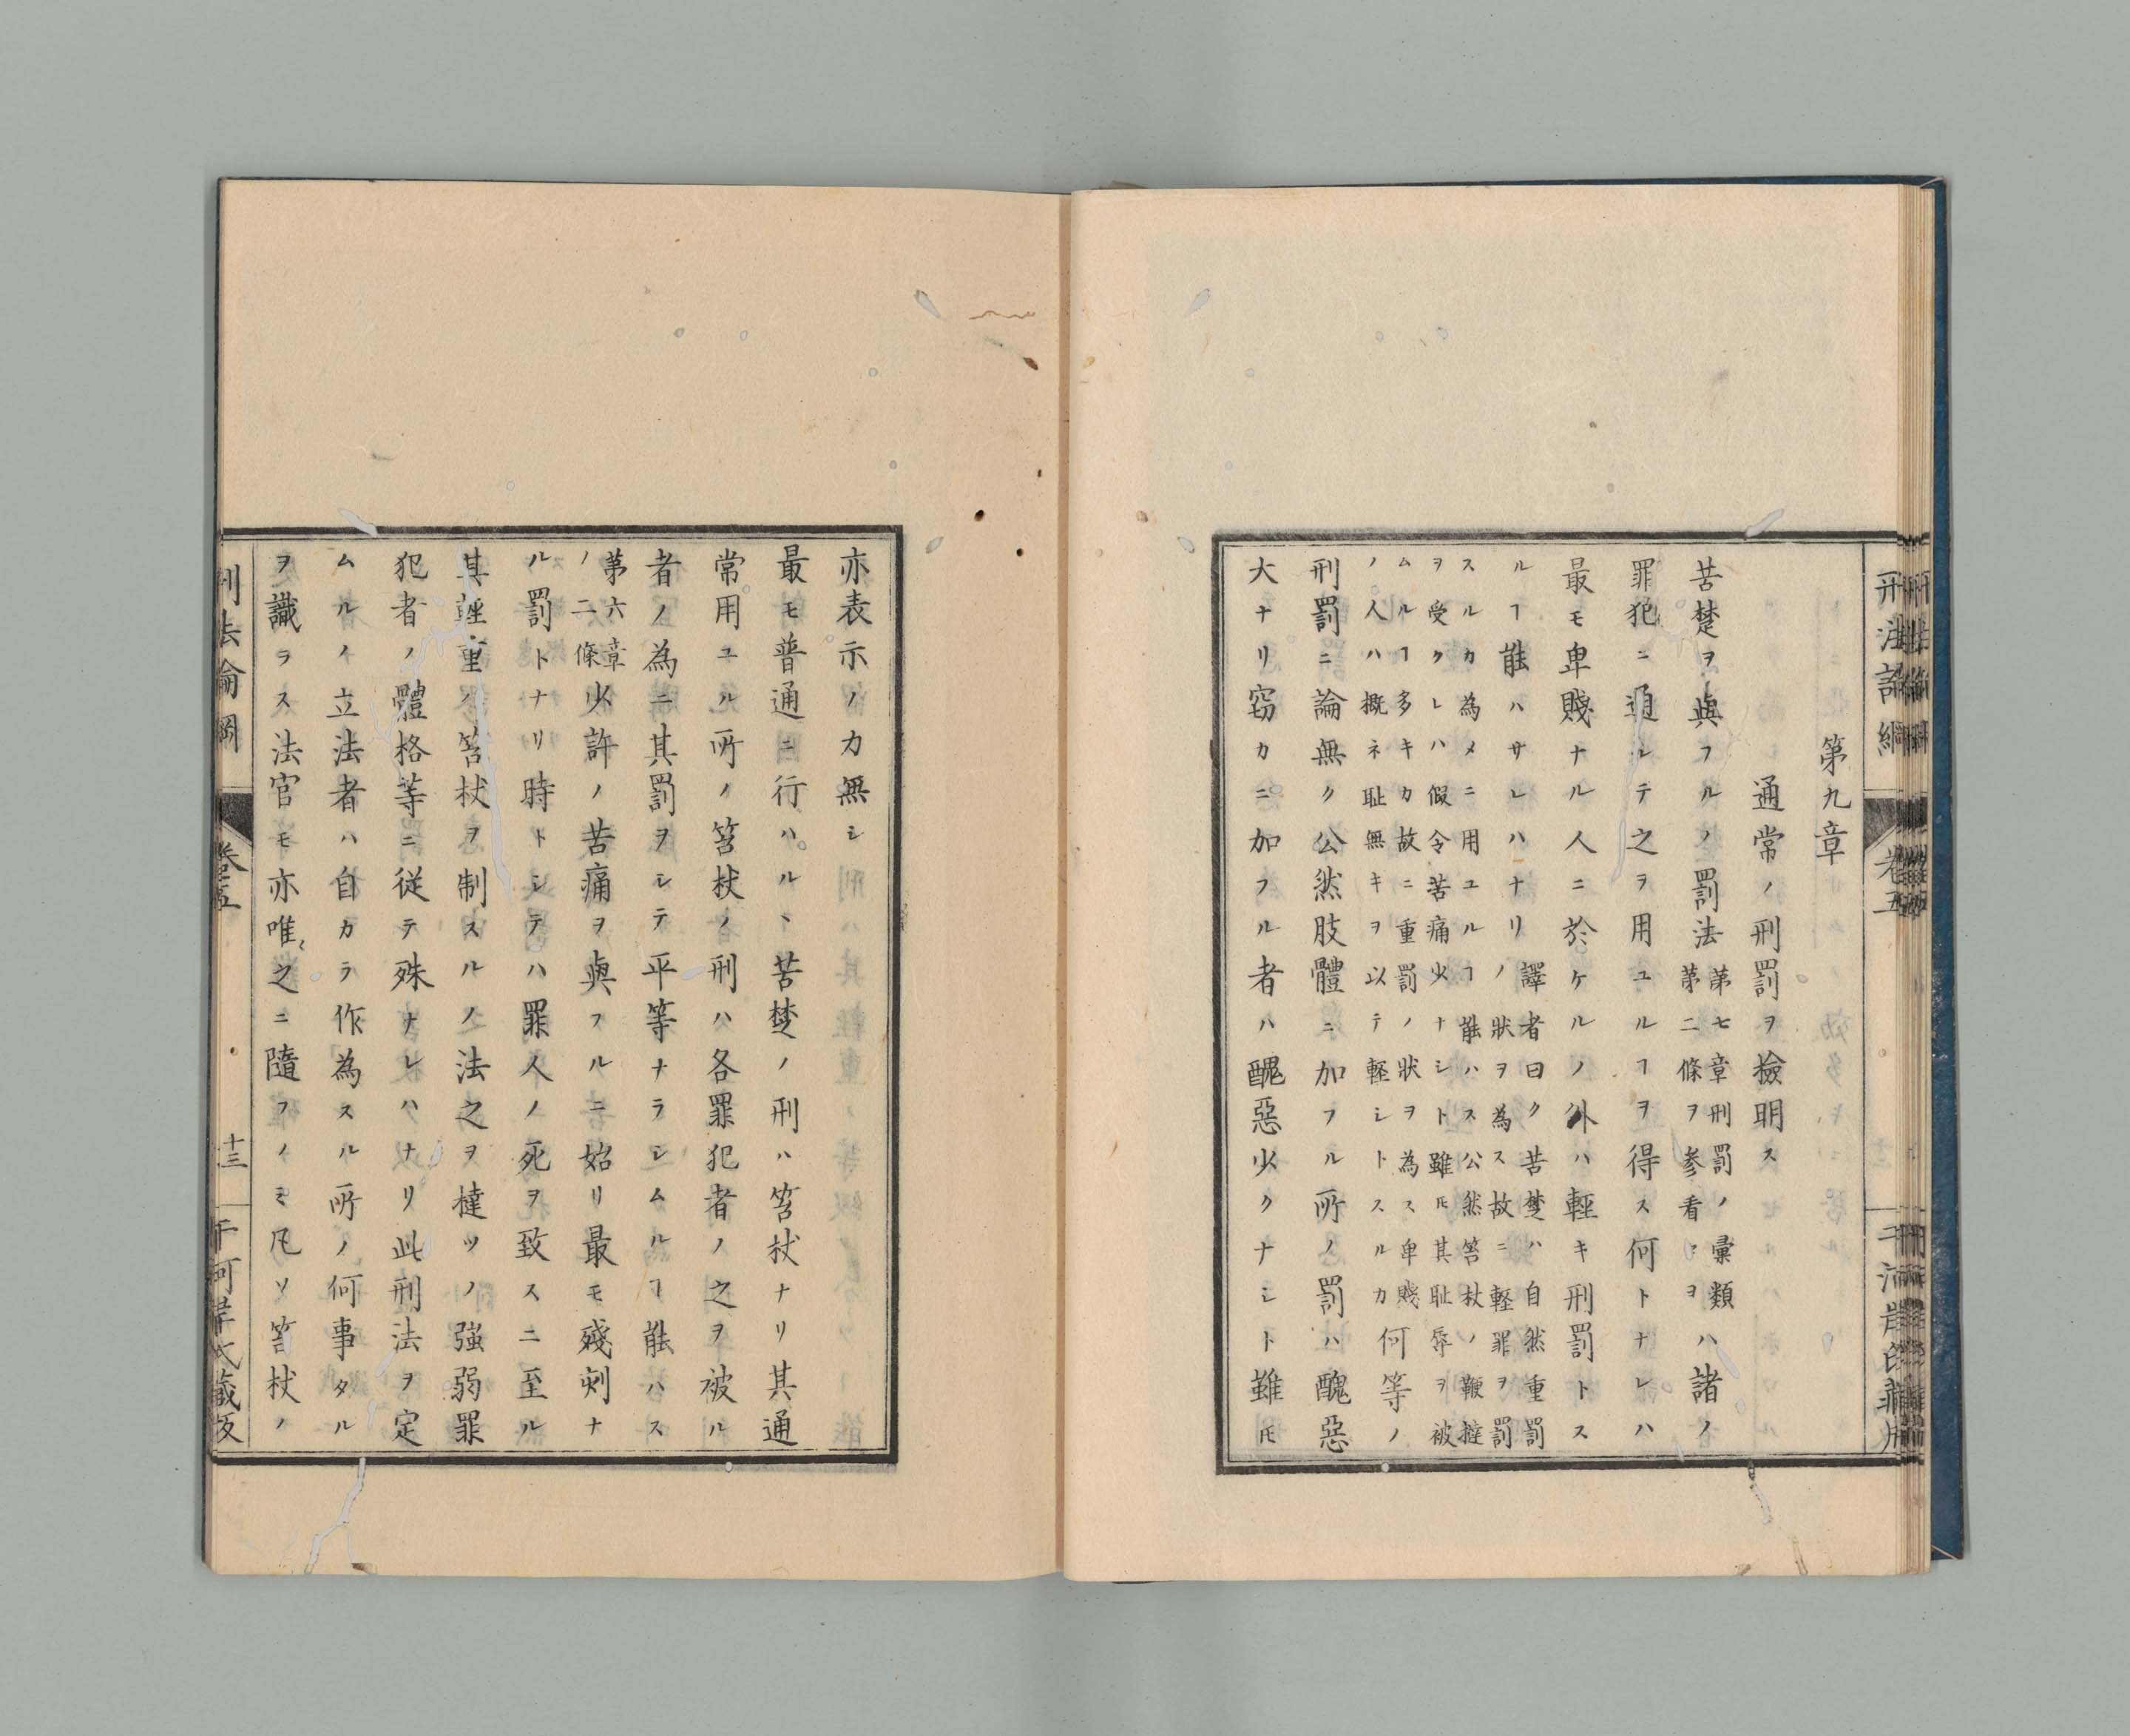 第九章
通常ノ刑罰ヲ檢明ス
苦楚ヲ與フルノ罰法第七章刑罰ノ彙類
第二條ヲ參看ミヨハ諸ノ
罪犯ニ通シテ之ヲ用ユルヿヲ得ス何トナレハ
最モ卑賤ナル人ニ於ケルノ外ハ輕キ刑罰トス
ルヿ能ハサレハナリ譯者曰ク苦楚ハ自然重罰
ノ狀ヲ為ス故ニ輕罪ヲ罰
スルカ為メニ用ユルヿ能ハス公然笞杖ノ鞭撻
ヲ受クレハ假令苦痛少ナシト雖𪜈其耻辱ヲ被
ムルヿ多キカ故ニ重罰ノ狀ヲ為ス卑賤
ノ人ハ概ネ耻無キヲ以テ輕シトスルカ何等ノ
刑罰ニ論無ク公然肢體ニ加フル所ノ罰ハ醜惡
大ナリ窃カニ加フル者ハ醜惡少クナシト雖𪜈
亦表示ノ力無シ
最モ普通ニ行ハルヽ苦楚ノ刑ハ笞杖ナリ其通
常用ユル所ノ笞杖ノ刑ハ各罪犯者ノ之ヲ被ル
者ノ為ニ其罰ヲシテ平等ナラシムルヿ能ハス
第六章
ノ二條少許ノ苦痛ヲ與フルニ始リ最モ殘刻ナ
ル罰トナリ時トシテハ罪人ノ死ヲ致スニ至ル
其輕重ノ笞杖ヲ制スルノ法之ヲ撻ツノ強弱罪
犯者ノ體格等ニ從テ殊ナレハナリ此刑法ヲ定
ムルノ立法者ハ自カラ作為スル所ノ何事タル
ヲ識ラス法官モ亦唯之ニ隨フノミ凡ソ笞杖ノ
刑法論綱
卷五
十三